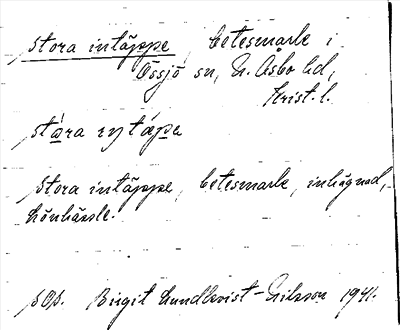 stora intäppe, betesmark i
Össjö sn, N. Åsbo hd,
Krist. l.
stóra iŋtápe
stora intäppe, betesmark, inhägnad,
SOS. Birgit Lundkvist-Nilsson 1941.